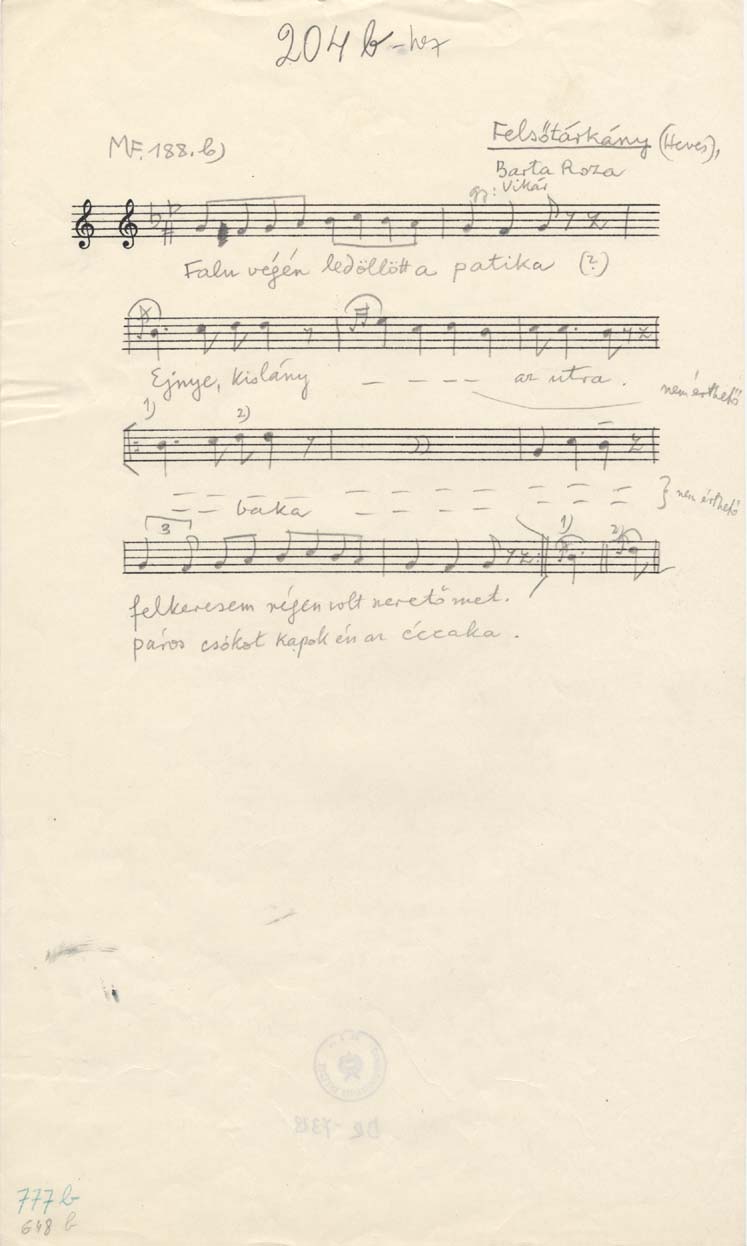 204 b-hez
MF. 188. b)
Felsőtárkány (Heves),
Barta Roza
gy: Vikár
Falu végén ledöllött a patika (?)
Ejnye, kislány — — — — az utra.
nem érthető
1) 2)
— — baka — —
} nem érthető
3 1) 2)
felkeresem régen volt szeretőmet.
páros csókot kapok én az éccaka.
777 b
648 b